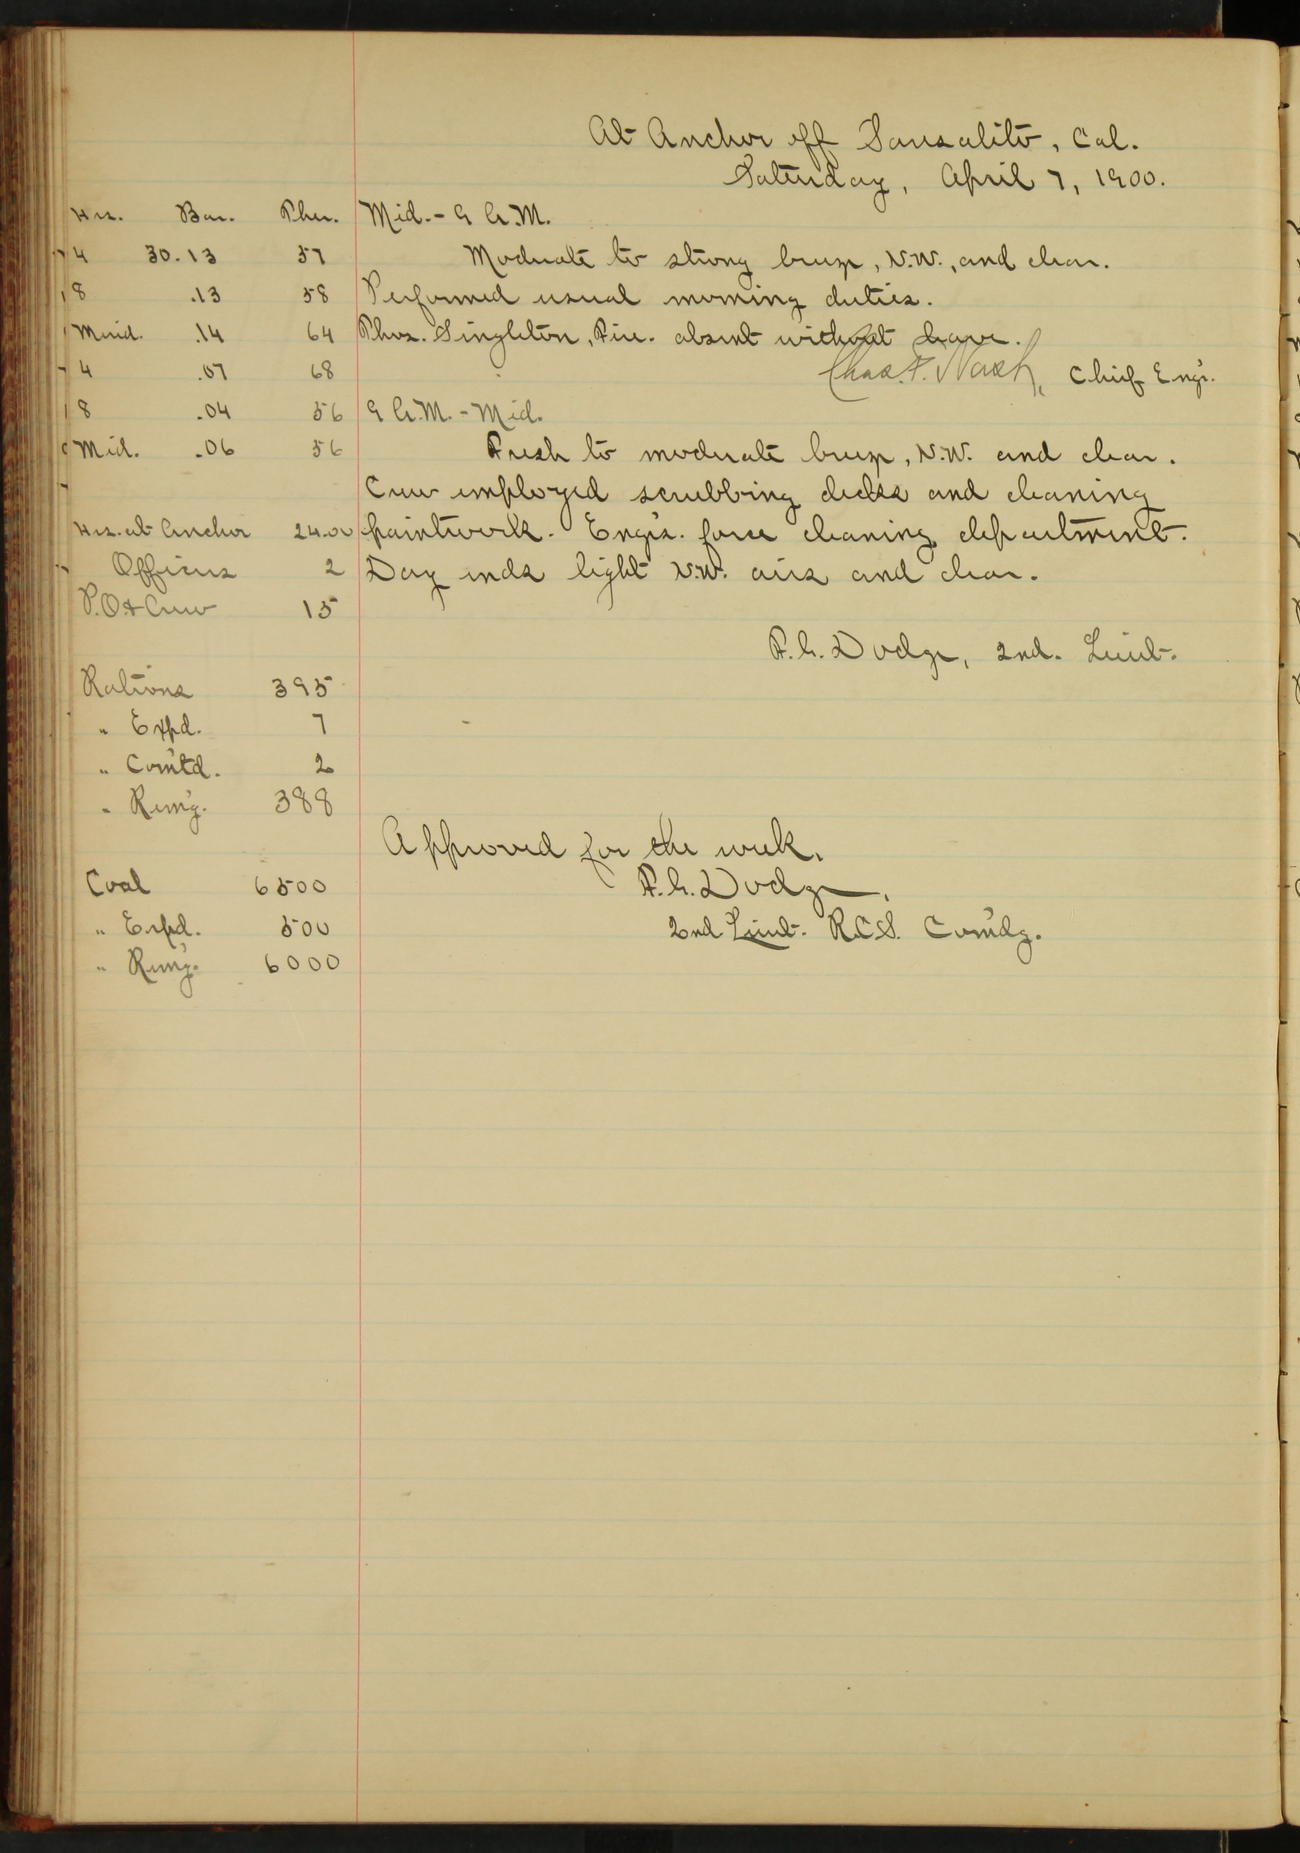 At Anchor off Sausalito, Cal.
Saturday, April 7, 1900.
Hrs. Bar. Ther.
4 30.13 57
8 .13 58
Merid. .14 64
4 .07 68
8 .04 56
Mid. .06 56
Hrs. at Anchor 24.00
Officers 2
P.O. & Crew 15
Rations 395
" Expd. 7
" Com'td. 2
" Rem'g. 388
Coal 6500
" Expd. 500
" Rem'g. 6000
Mid. - 9 A.M.
Moderate to strong breeze, N.W., and clear.
Performed usual morning duties.
Thos. Singleton, Fire. absent without leave.
Chas. F. Nash, Chief Engr.
9 A.M. - Mid.
Fresh to moderate breeze, N.W. and clear.
Crew employed scrubbing decks and cleaning
paintwork. Engr's. force cleaning department.
Day ends light N.W. airs and clear.
F.G. Dodge, 2nd. Lieut.
Approved for the week.
F.G. Dodge,
2nd Lieut. R.C.S. Com'dg.